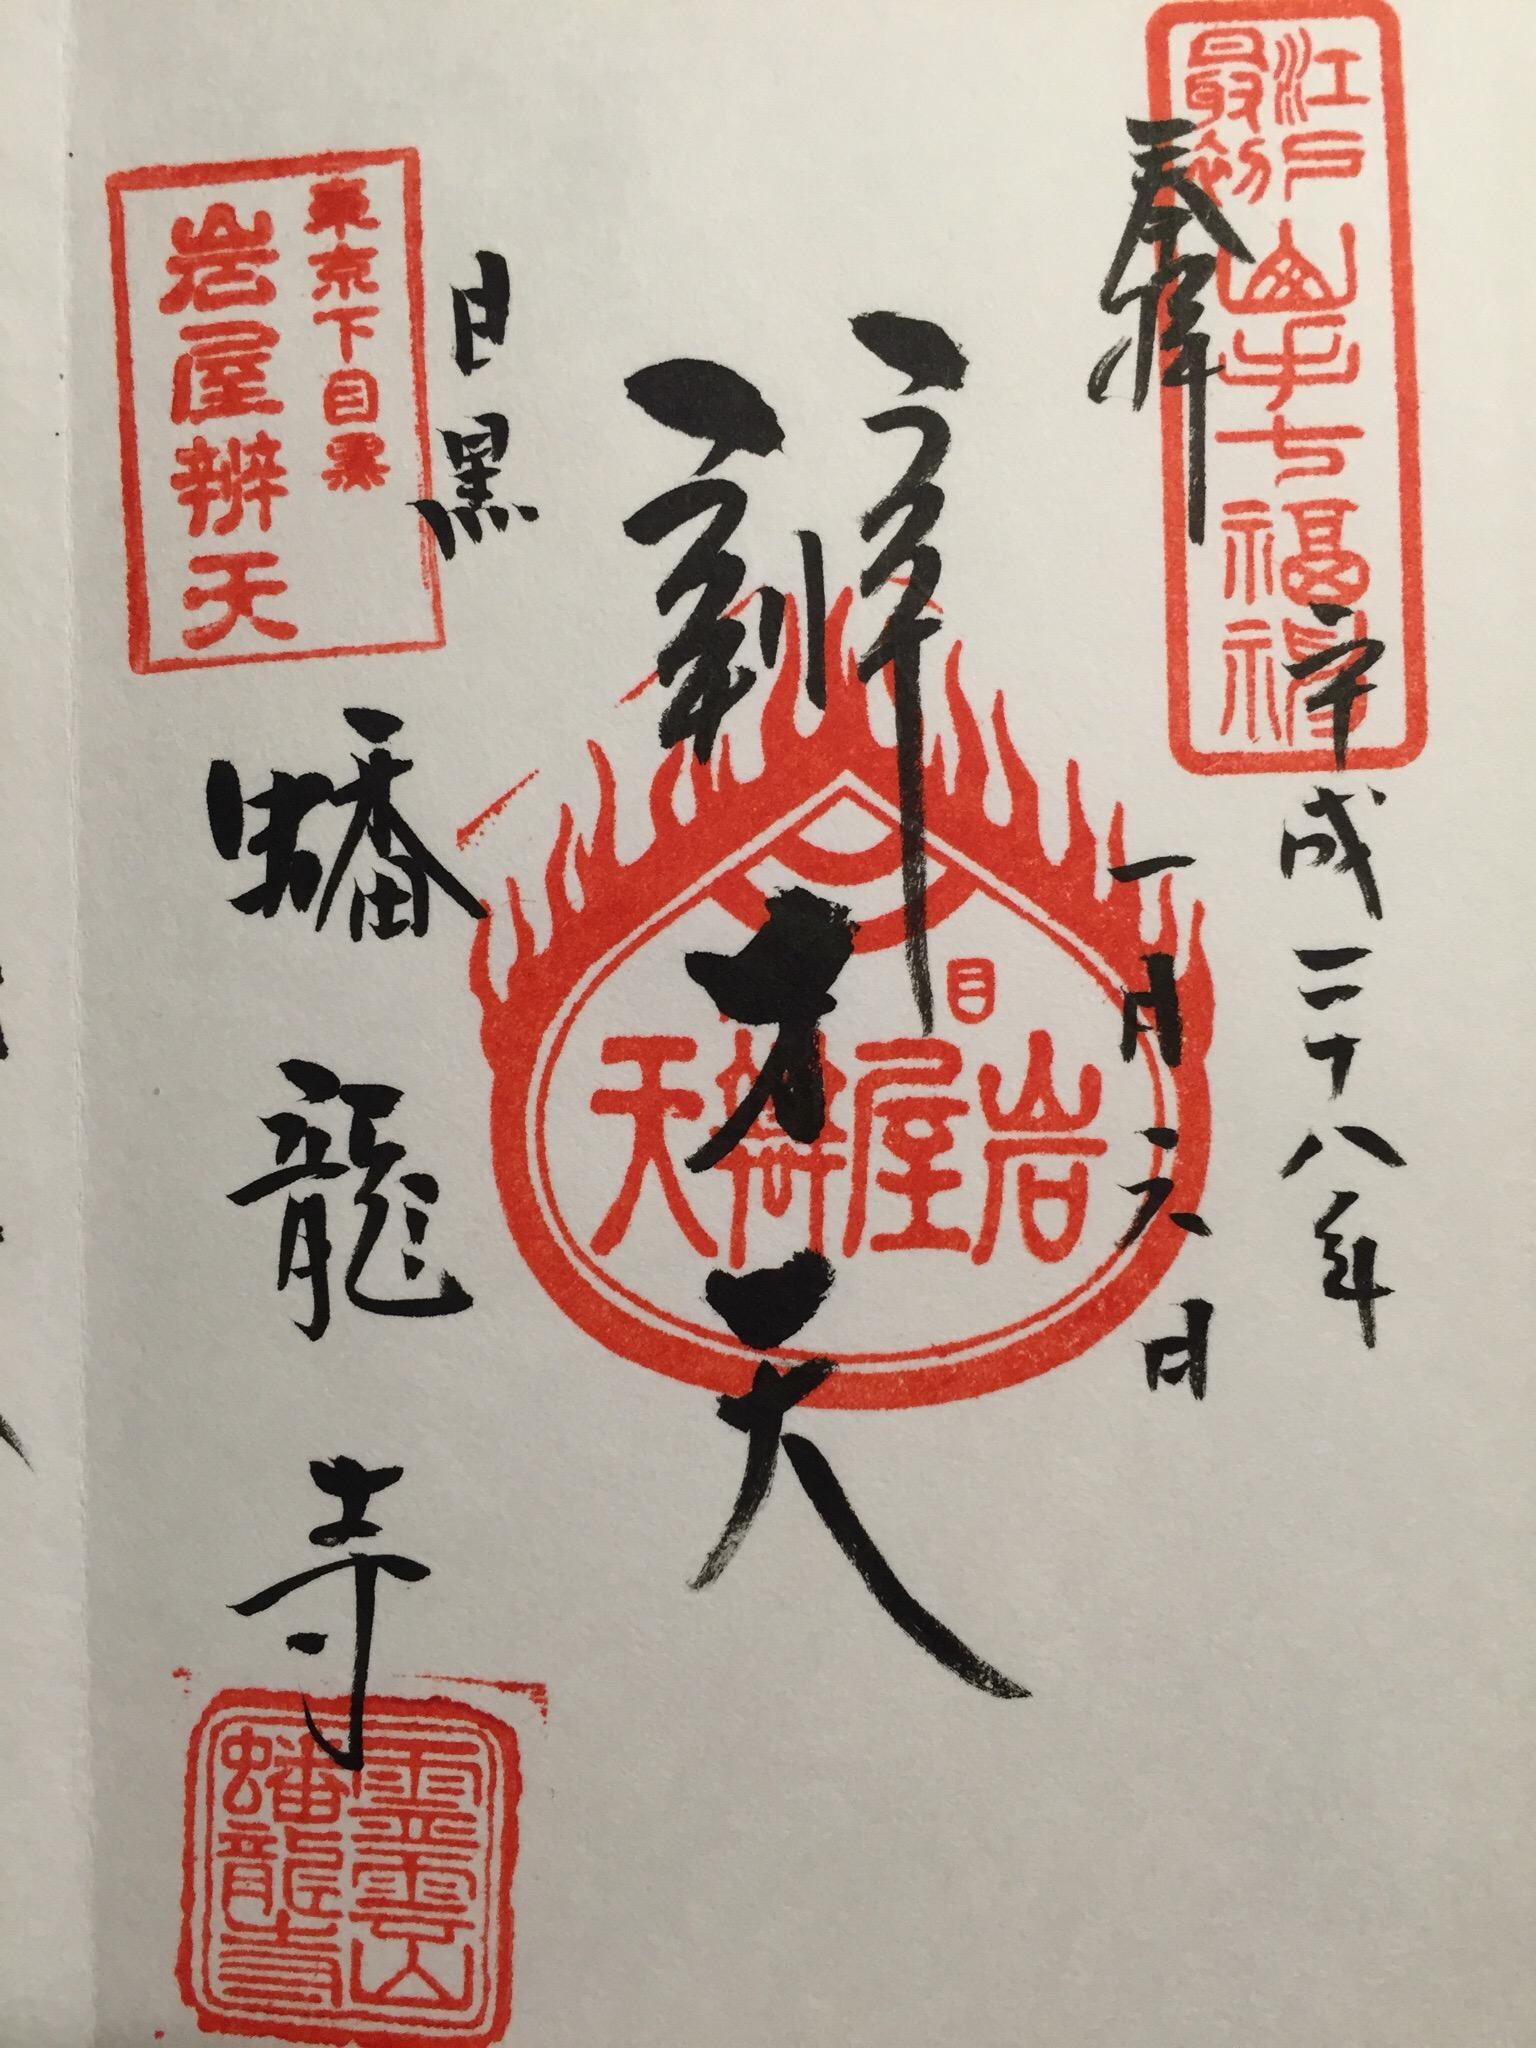 江戸最初
山手七福神
奉拝
平成二十八年
一月六日
辨才天
目
岩屋辨天
目黒
蟠龍寺
東京下目黒
岩屋辨天
霊雲山
蟠龍寺